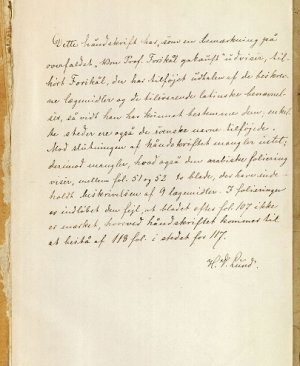 Dette håndskrift har, som en bemærkning på
omslaget: Von Prof. Forskål gekauft udviser, til-
hørt Forskål, der har tilføjet udtalen af de beskrev-
ne lægemidler og de tilsvarende latinske benævnel-
ser, så vidt han har kunnet bestemme dem, enkel-
te steder ere også de svenske navne tilføjede.
Mod slutningen af håndskriftet mangler intet;
dermod mangler, hvad også den arabiske foliering
viser, mellem fol. 51 og 52 et blade, der have inde-
holdt beskrivelsen af 9 lægemidler. I folieringen
er indløbet den fejl, at bladet efter fol. 107 ikke
er mærket, hvorved håndskriftet kommer til
at bestå af 118 fol. i stedet for 117.
H. P. Lund.